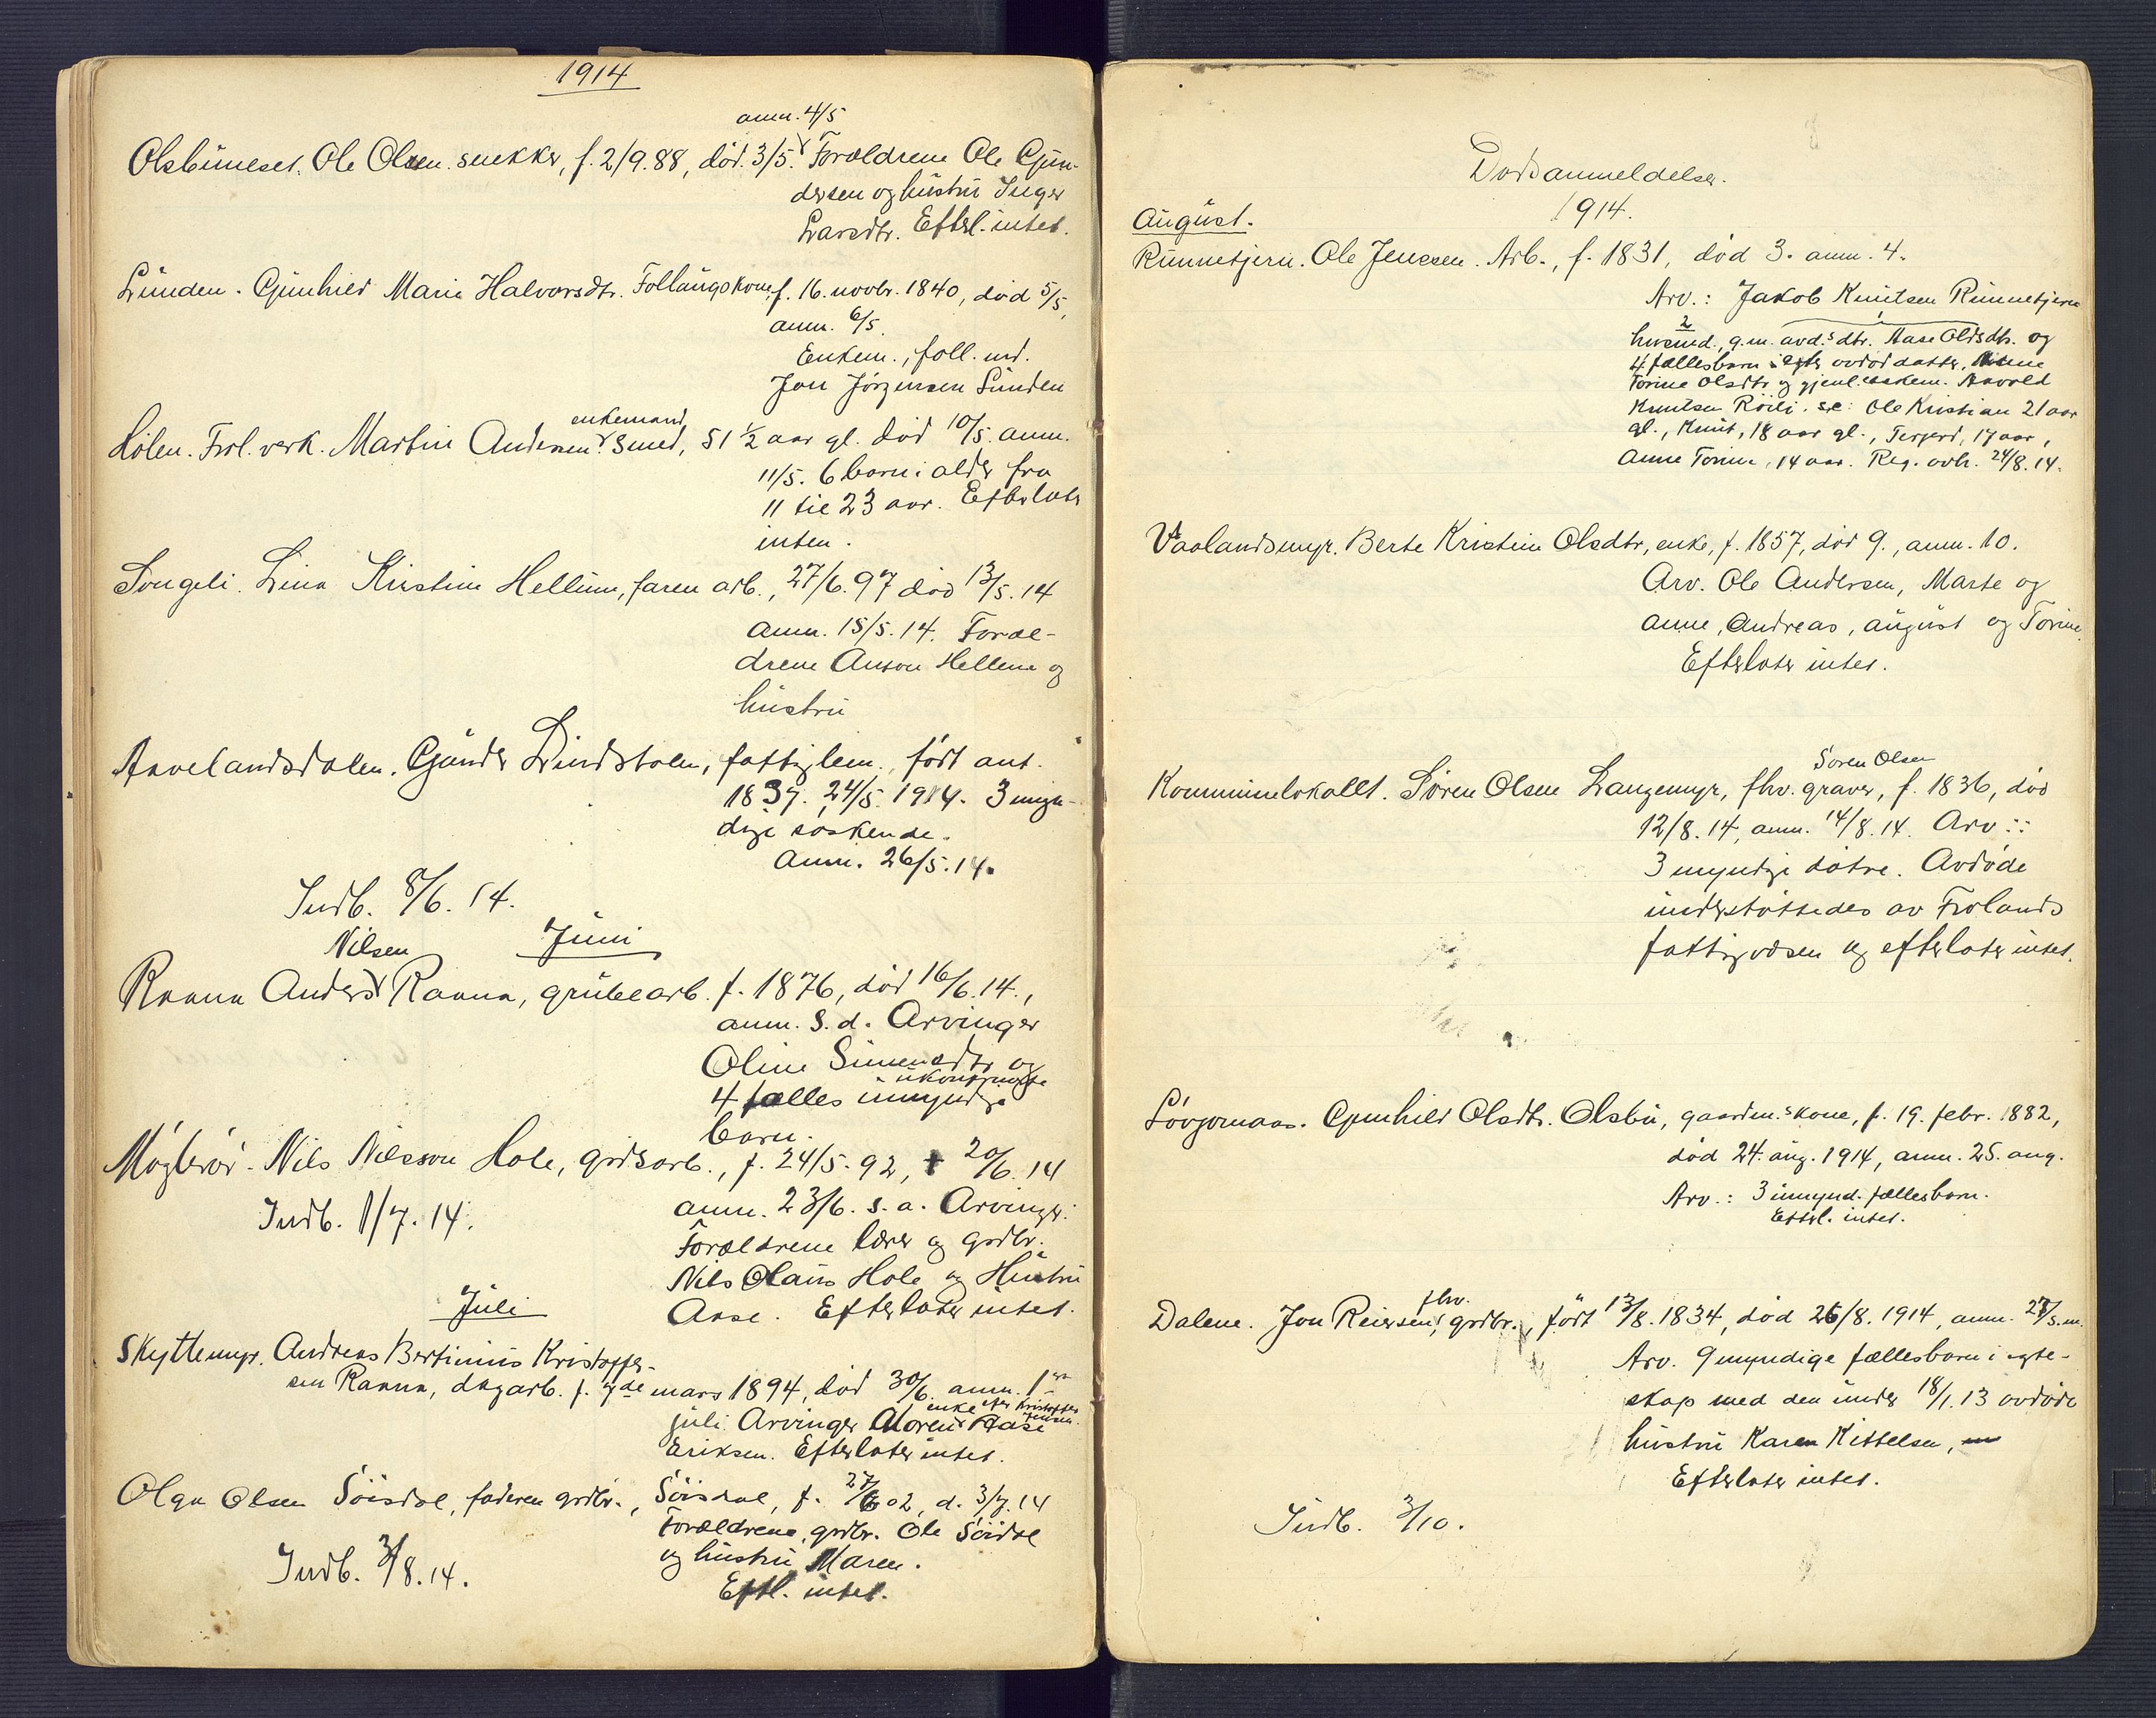 1914
anm. 4/5
Olsbuneset. Ole Olsen. snekker, f. 2/9.88, död. 3/5. Forældrene Ole Gjun-
dersen og hustru Inger
Larsdtr. Efterl. intet.
Lunden. Gjunhild Marie Halvorsdtr. Follaugskone, f. 16. novbr. 1840, död 5/5,
anm. 6/5.
Enkem., foll. md.
Jon Jörgensen Lunden
enkemand
Lölen. Frol. verk. Martin Andersen. Smed, 51 ½ aar gl. död 10/5. anm.
11/5. 6 barn i alder fra
11 til 23 aar. Efterlater
inten.
Songeli. Lina Kristine Hellum, faren arb., 27/6.97 död 13/5.14
anm. 15/5.14. Foræl-
drene Anson Hellem og
hustru
Aavelandsdalen. Gjunder Lindstolen, fattiglem., födt ant.
1839. 24/5. 1914. 3 myn-
dige söskende.
Anm. 26/5.14.
Indb. 8/6.14.
Juni
Nilsen
Raana Anders Raana, grubearb. f. 1876, död 16/6.14.,
anm. S.d. Arvinger
Oline Simensdtr og
ukonfirmerte
4 fælles umyndige
barn.
Möglerör. Nils Nilsson Hole, grdsarb., f. 24/5.92, † 20/6.14
anm. 23/6. s.a. Arvinger:
Forældrene lærer og grdbr.
Nils Olaus Hole og Hustru
Aase. Efterlater intet.
Indb. 1/7.14.
Juli
Skyttemyr. Andreas Bertinius Kristoffer-
sen Raana, dagarb. f. 7de mars 1894, död 30/6. anm. 1ste
enke efter Kristoffer Jensen.
juli. Arvinger Moren Aase
Eriksen. Efterlater intet.
Olga Olsen Söisdal, faderen grdbr., Söisdal, f. 27/6 02, d. 3/7.14
Forældrene, grdbr. Ole Söisdal
og hustru Maren.
Eftl. intet.
Indb. 3/8.14.
Dødsanmeldelser.
1914.
August.
Runnetjern. Ole Jenssen. Arb., f. 1831, död 3. anm. 4.
Arv.: Jakob Knutsen Runnetjern
husmd., g.m. avd.s dtr. Aase Olsdtr. og
4 fællesbarn efter avdöd datter, Anne
Torine Olsdtr og gjenl. enkem. Aavold
Knutsen Röili. s.e: Ole Kristian 21 aar
gl., Knut, 18 aar gl., Terjerd, 17 aar,
Anne Torine, 14 aar. Reg. avh. 24/8.14.
Vaalandsmyr. Berte Kristine Olsdtr, enke, f. 1857, död 9., anm. 10.
Arv. Ole Andersen, Marte og
Anne, Andreas, August og Torine.
Efterlater intet.
Sören Olsen
Kommunelokallt. Sören Olsen Langemyr, fhv. graver, f. 1836, död
12/8.14, anm. 14/8.14. Arv.:
3 myndige dötre. Avdöde
understöttedes av Frolands
fattigvæsen og efterlater intet.
Lövjomaas. Gjunhild Olsdtr. Olsbu, gaardm.skone, f. 19. febr. 1882,
död 24. aug. 1914, anm. 25. aug.
Arv.: 3 umynd. fællesbarn.
Efterl. intet.
fhv.
Dalene. Jon Reiersen, grdbr., födt 13/8.1834, död 26/8.1914, anm. 27/s.m.
Arv. 9 myndige fællesbarn i egte-
skap med den under 18/1.13 avdöde
hustru Karen Kittelsen,
Efterlater intet.
Indb. 3/10.